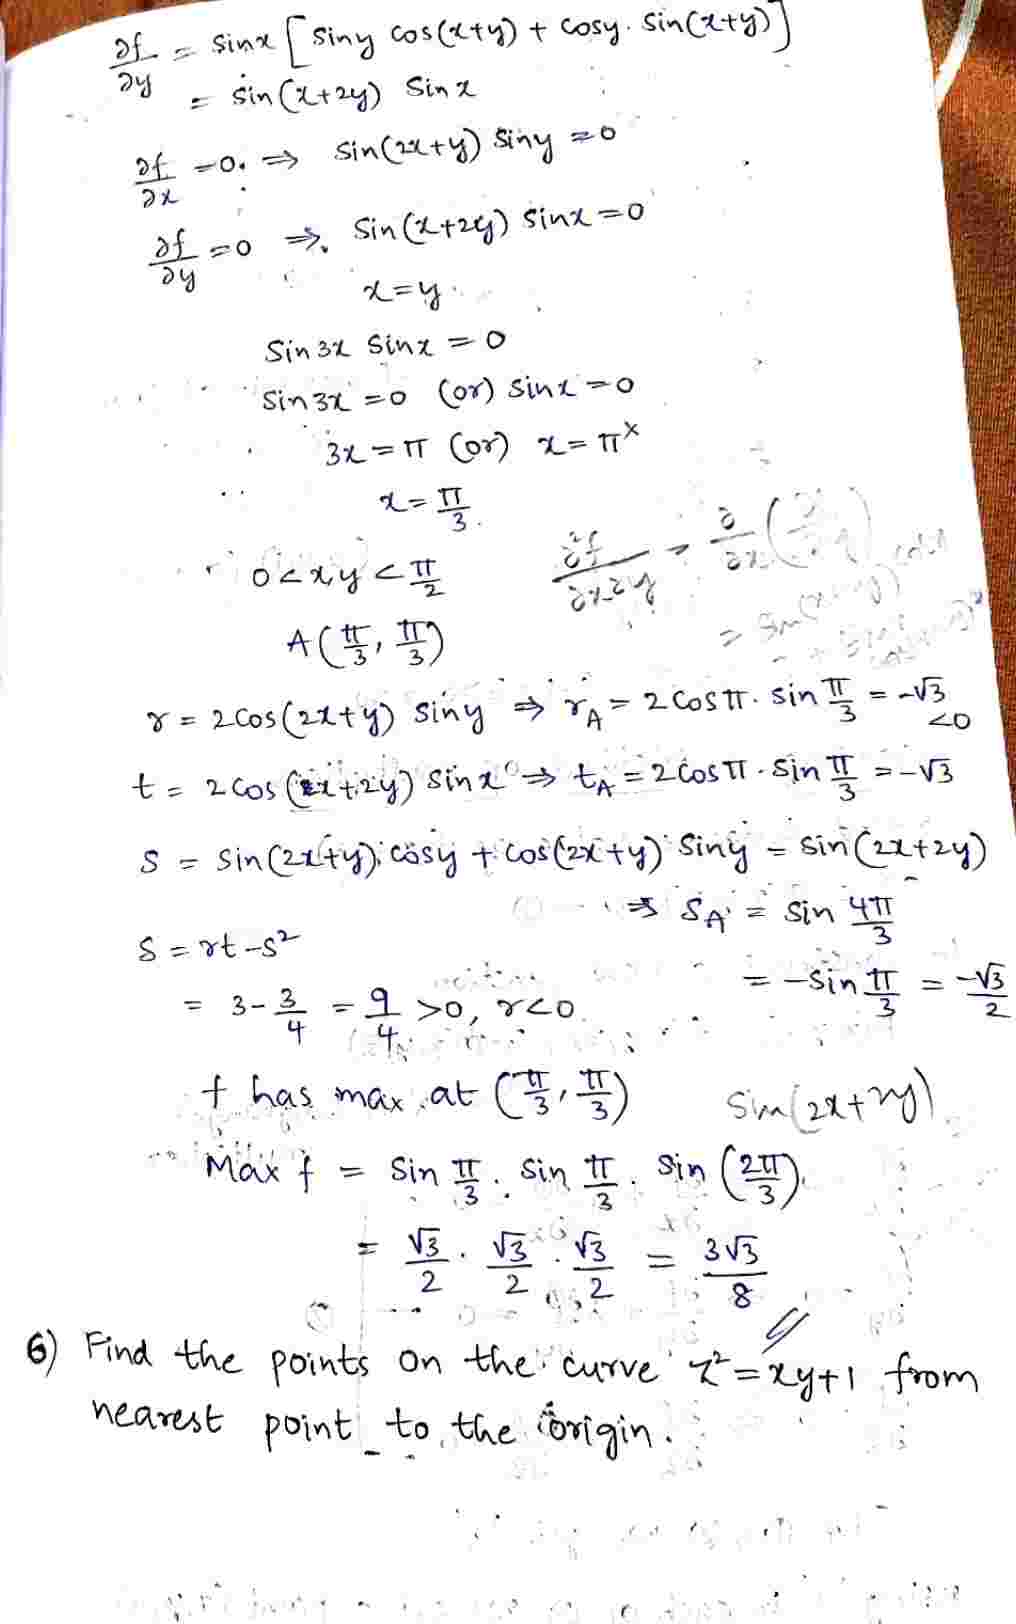 ∂f/∂y = sinx [siny cos(x+y) + cosy. sin(x+y)]
= sin(x+2y) sinx
∂f/∂x =0. ⇒ sin(2x+y) siny =0
∂f/∂y =0 ⇒. sin(x+2y) sinx =0
x=y
sin3x sinx = 0
sin3x =0 (or) sinx =0
3x = π (or) x = π ×
x = π/3.
0 < x,y < π/2
A(π/3, π/3)
r = 2cos(2x+y) siny ⇒ r_A = 2cosπ. sin π/3 = -√3 <0
t = 2cos(x+2y) sinx ⇒ t_A = 2cosπ. sin π/3 = -√3
S = sin(2x+y). cosy + cos(2x+y) siny = sin(2x+2y)
⇒ S_A = sin 4π/3
S = rt - s²
= -sin π/3 = -√3/2
= 3 - 3/4 = 9/4 >0, r<0
f has max at (π/3, π/3)
sin(2x+2y)
Max f = sin π/3. sin π/3. sin (2π/3).
= √3/2 . √3/2 . √3/2 = 3√3/8
6) Find the points on the curve z² = xy+1 from
nearest point to the origin.